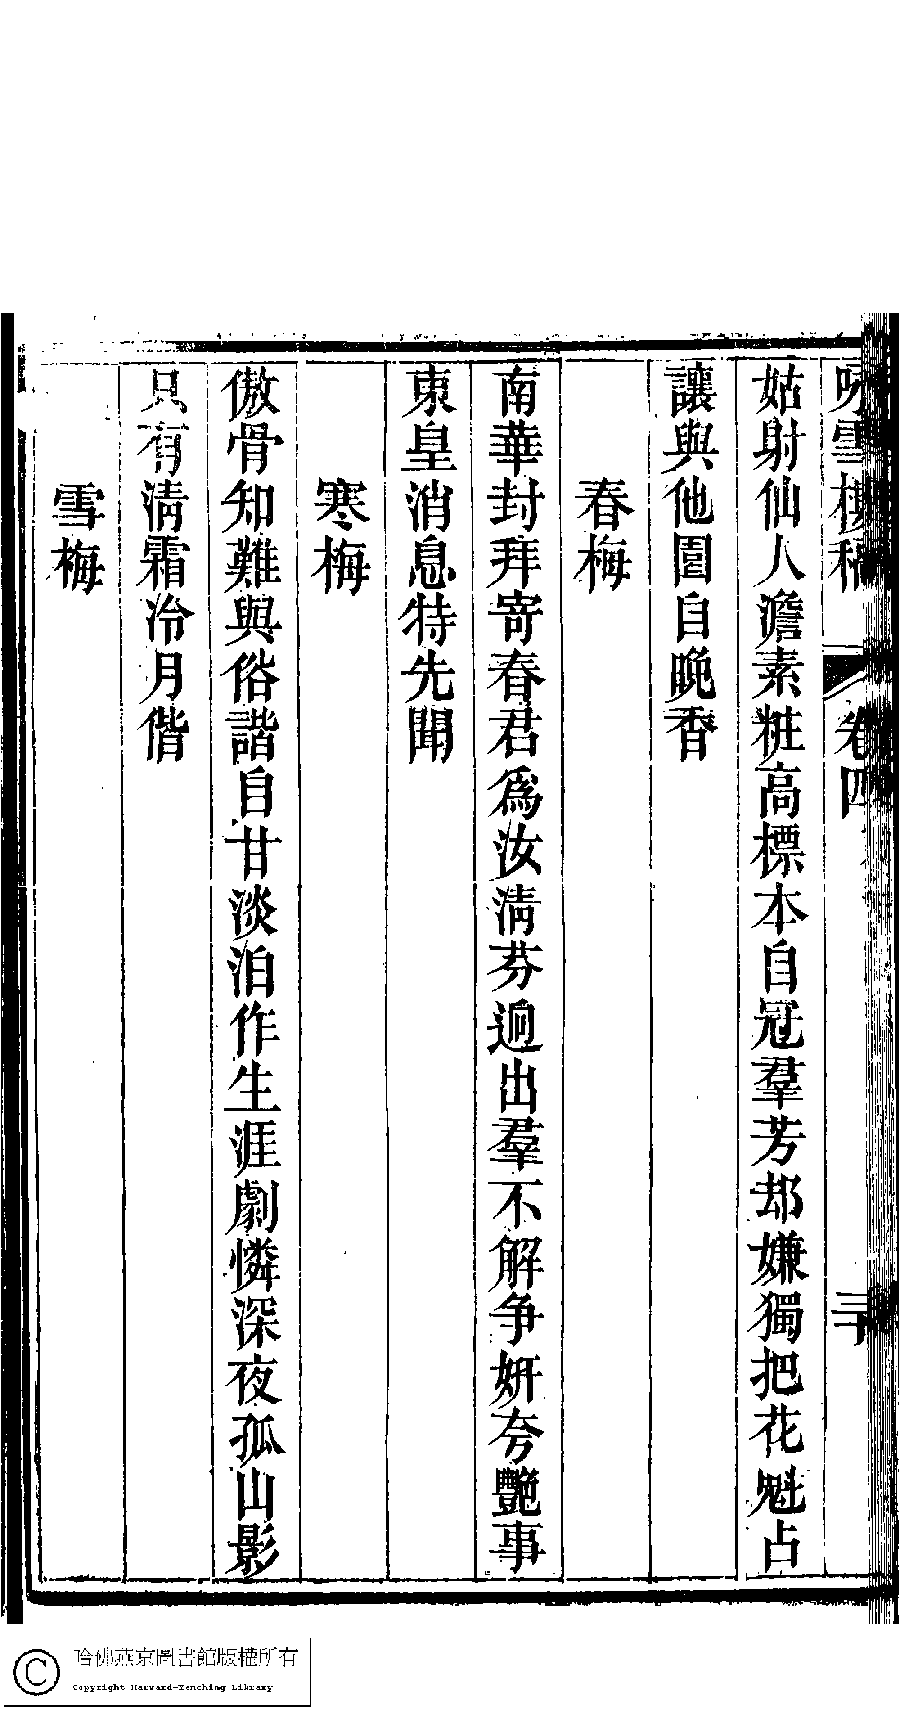 咏雪樓稿 卷四 三十
姑射仙人澹素粧高標本自冠羣芳却嫌獨把花魁占
讓與他園自晚香
春梅
南華封拜寄春君爲汝清芬逈出羣不解争妍夸艷事
東皇消息特先聞
寒梅
傲骨知難與俗諧自甘淡泊作生涯劇憐深夜孤山影
只有清霜冷月偕
雪梅
哈佛燕京圖書館版權所有
Copyright Harvard-Yenching Library